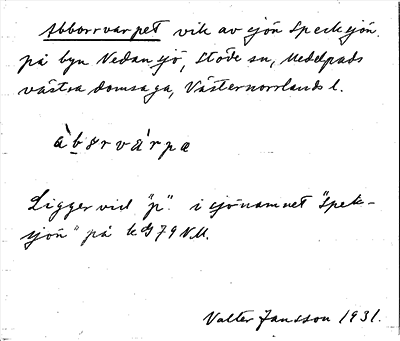 Abborrvarpet vik av sjön Specksjön
på byn Nedansjö, Stöde sn, Medelpads
västra domsaga, Västernorrlands l.
àbȣrvárpa
Ligger vid "p" i sjönamnet "Spek-
sjön" på kG79NM.
Valter Jansson 1931.